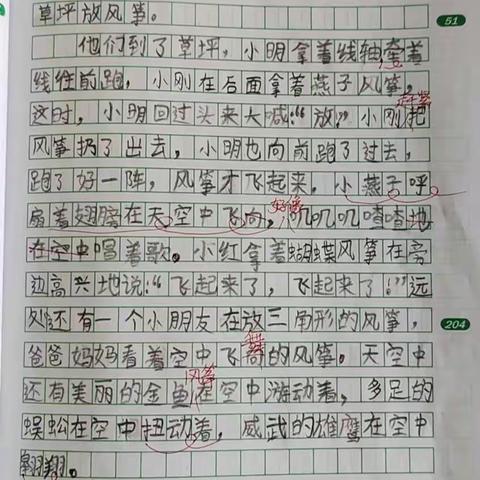 草坪放风筝。
51
他们到了草坪，小明拿着线轴牵着
线往前跑，小刚在后面拿着燕子风筝，
赶紧
这时，小明回过头来大喊：“放”小刚把
风筝扔了出去，小明也向前跑了过去，
跑了好一阵，风筝才飞起来，小燕子呼
好像
扇着翅膀在天空中飞向，叽叽叽喳喳地
在空中唱着歌。小红拿着蝴蝶风筝在旁
边高兴地说：“飞起来了，飞起来了！”远
处还有一个小朋友在放三角形的风筝，
204
爸爸妈妈看着空中飞高的风筝。天空中
风筝
还有美丽的金鱼在空中游动着，多足的
蜈蚣在空中扭动着，威武的雄鹰在空中
翱翔。